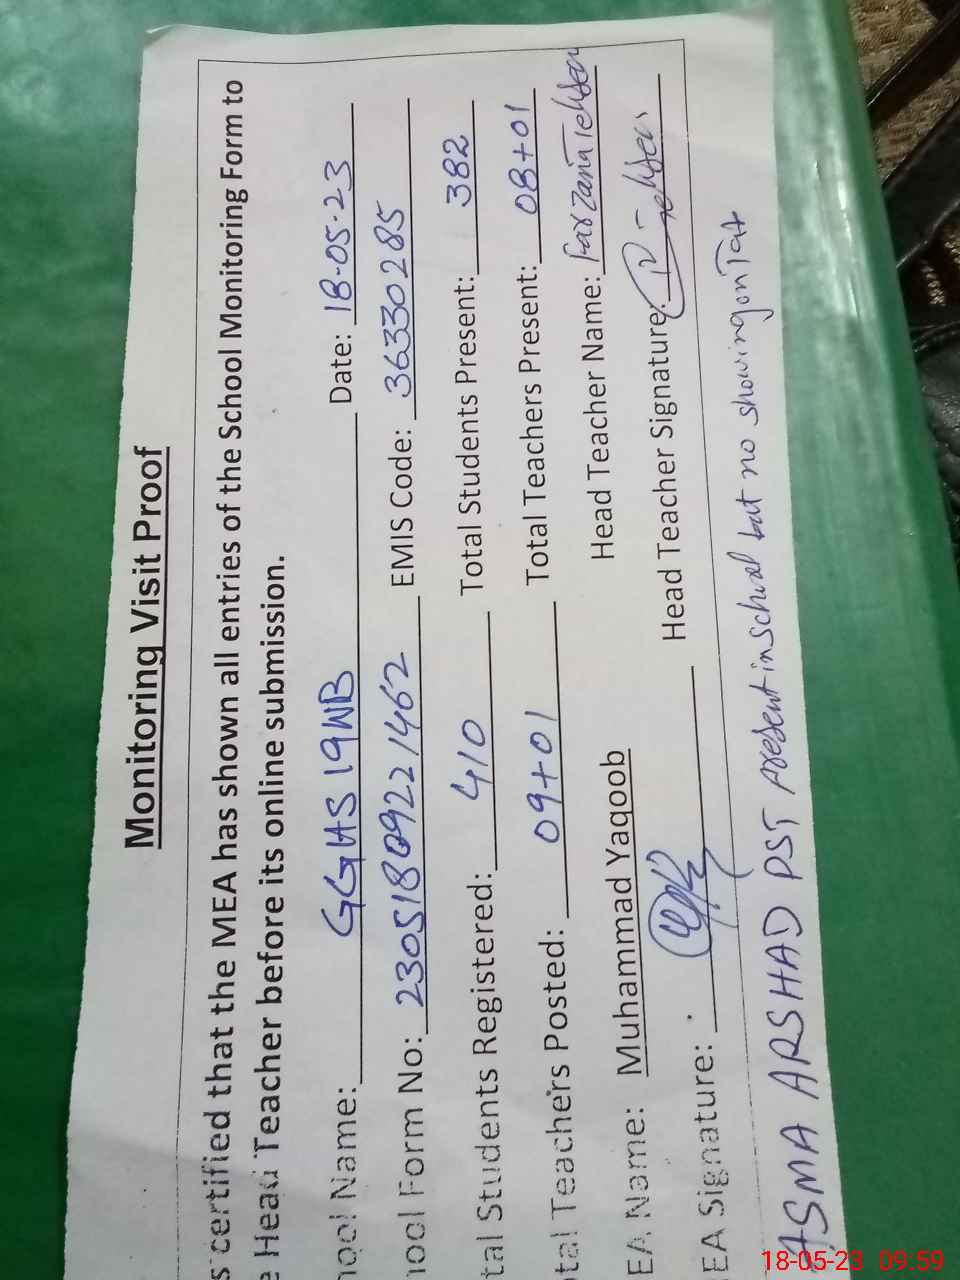 Monitoring Visit Proof
s certified that the MEA has shown all entries of the School Monitoring Form to
e Head Teacher before its online submission.
hool Name: GGHS 19WB Date: 18-05-23
hool Form No: 23051809221462 EMIS Code: 36330285
tal Students Registered: 410 Total Students Present: 382
tal Teachers Posted: 09+01 Total Teachers Present: 08+01
EA Name: Muhammad Yaqoob Head Teacher Name: Farzana
EA Signature: Head Teacher Signature:
ASMA ARSHAD PST present in school but no showing on Tat
18-05-23 09:59